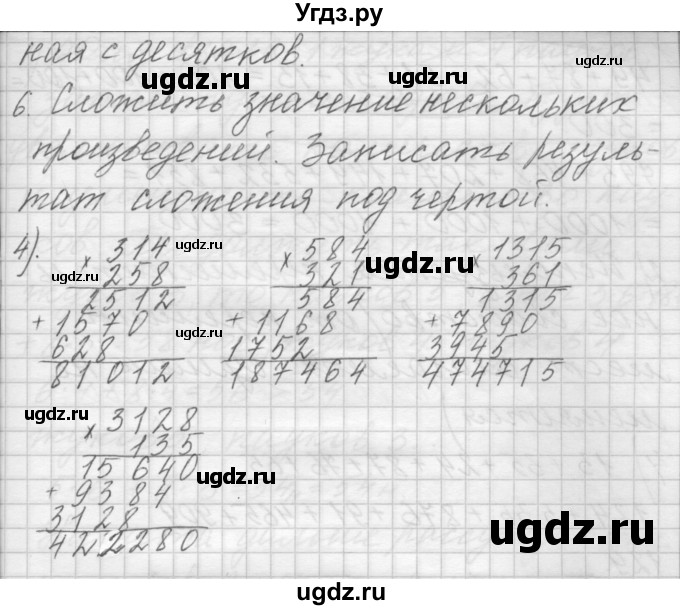 Угдз.ру
ная с десятков.
ugdz.ru
ugdz.ru
6. Сложить значение нескольких
произведений. Записать резуль-
тат сложения под чертой.
ugdz.ru
ugdz.ru
4). × 314 × 584 × 1315
ugdz.ru ugdz.ru ugdz.ru
258 321 361
2512 584 1315
+ 1570 + 1168 + 7890
ugdz.ru
628 1752 3945
81012 187464 474715
ugdz.ru
× 3128
135
15640
ugdz.ru
+ 9384
3128
ugdz.ru
422280
ugdz.ru